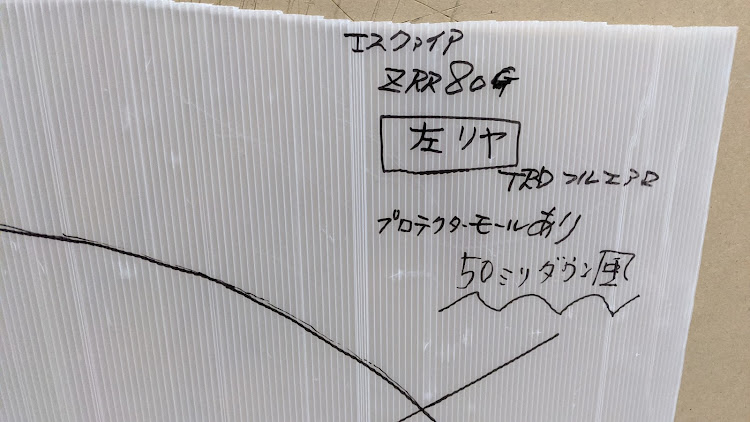 エスクァイア
ZRR80G
左リヤ
TRDフルエアロ
プロテクターモールあり
50ミリダウン風